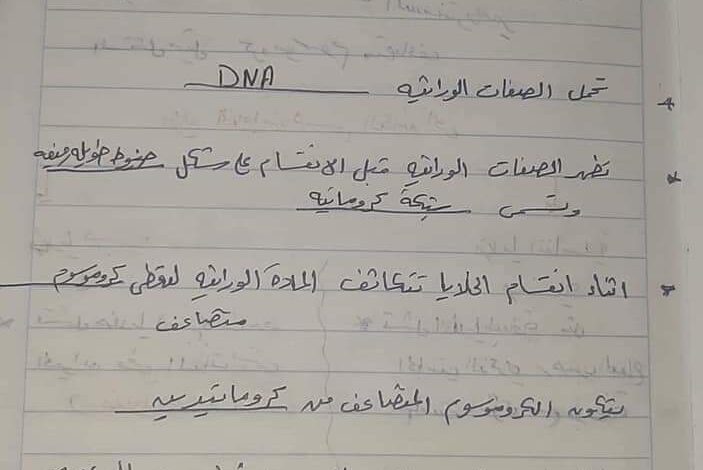 * تحمل الصفات الوراثيه DNA
* تظهر الصفات الوراثيه قبل الانقسام على شكل خيوط طويله رفيعه
وتسمى شبكة كروماتيه
* اثناء انقسام الخلايا تتكاثف المادة الوراثيه لتعطي كروموسوم
متضاعف
يتكون الكروموسوم المتضاعف من كروماتيدين